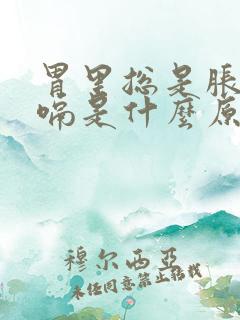 胃里总是胀
喘是什麼原
穆尔西亚
未经同意禁止转载